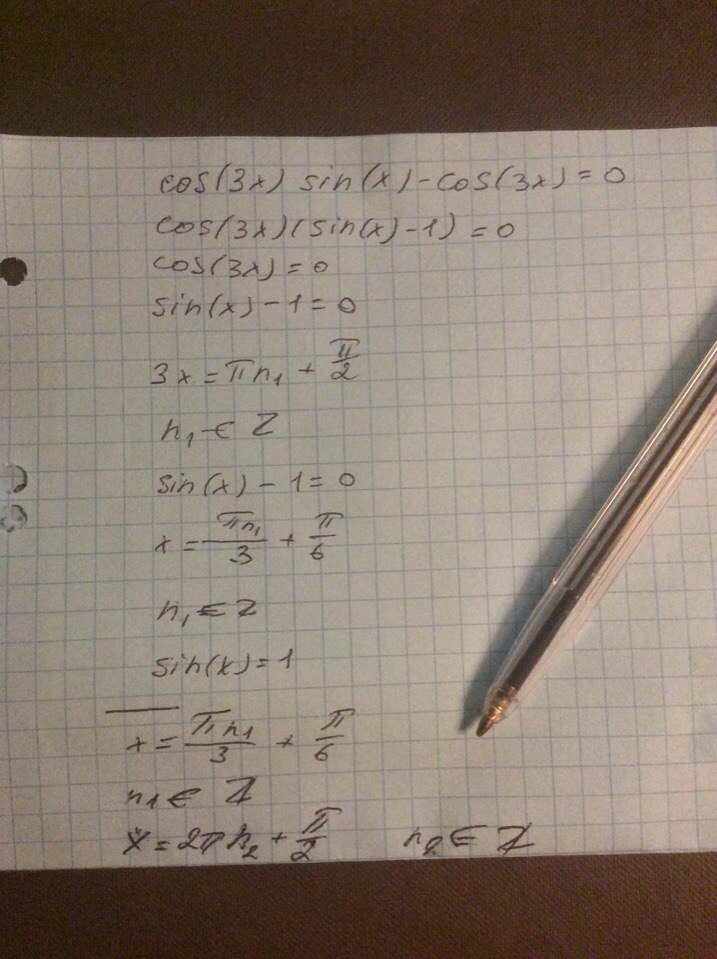 cos(3x) sin(x) - cos(3x) = 0
cos(3x)(sin(x) - 1) = 0
cos(3x) = 0
sin(x) - 1 = 0
3x = πn₁ + π/2
n₁ ∈ Z
sin(x) - 1 = 0
x = πn₁/3 + π/6
n₁ ∈ Z
sin(x) = 1
x = πn₁/3 + π/6
n₁ ∈ Z
x = 2πn₂ + π/2 n₂ ∈ Z